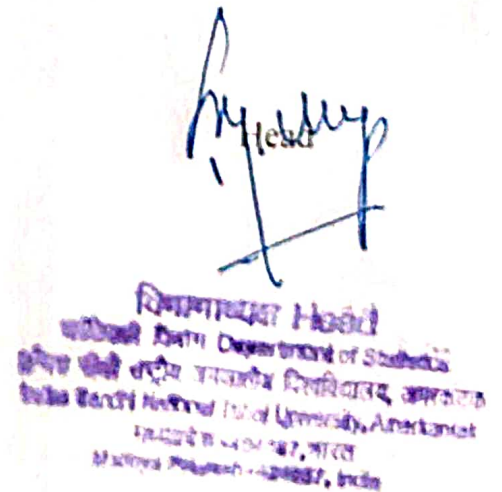 Head
विभागाध्यक्ष Head
सांख्यिकी विभाग Department of Statistics
इन्दिरा गाँधी राष्ट्रीय जनजातीय विश्वविद्यालय, अमरकंटक
Indira Gandhi National Tribal University, Amarkantak
भारत
Madhya Pradesh - India